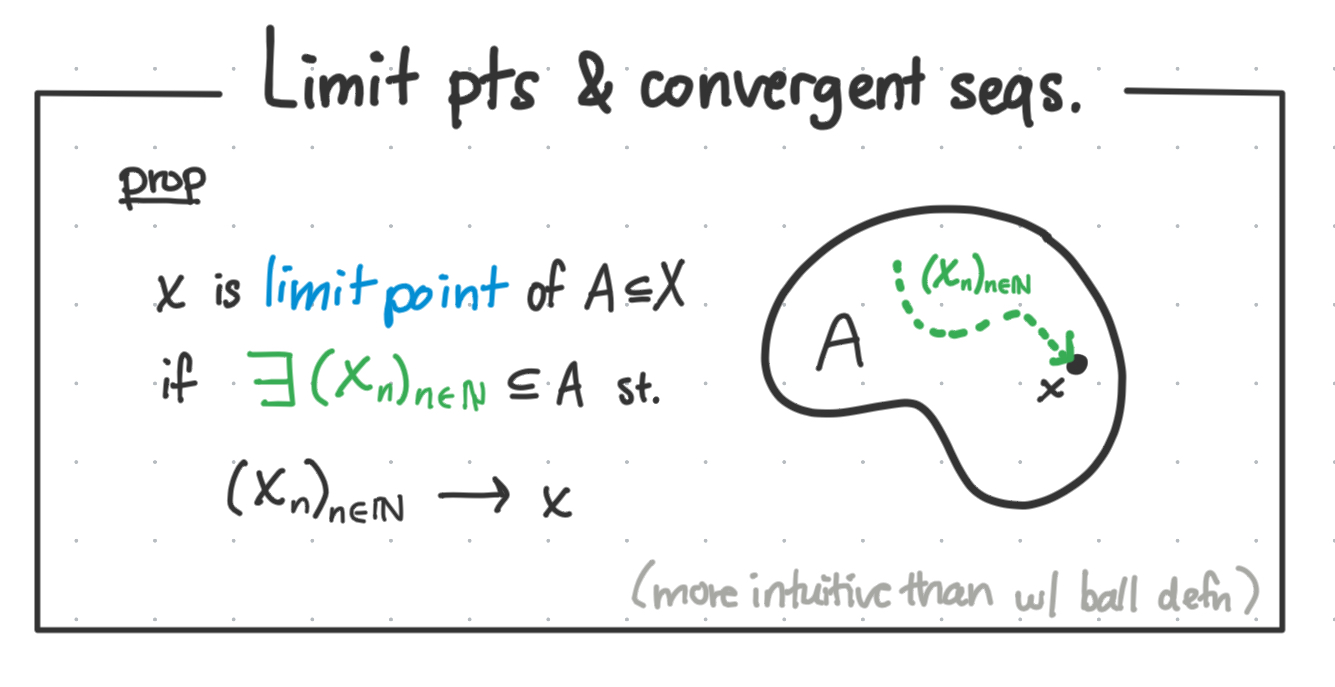 Limit pts & convergent seqs.
prop
x is limit point of A⊆X
if ∃(xₙ)ₙ∈ℕ ⊆ A st.
(xₙ)ₙ∈ℕ → x
A
(xₙ)ₙ∈ℕ
x
(more intuitive than w/ ball defn)